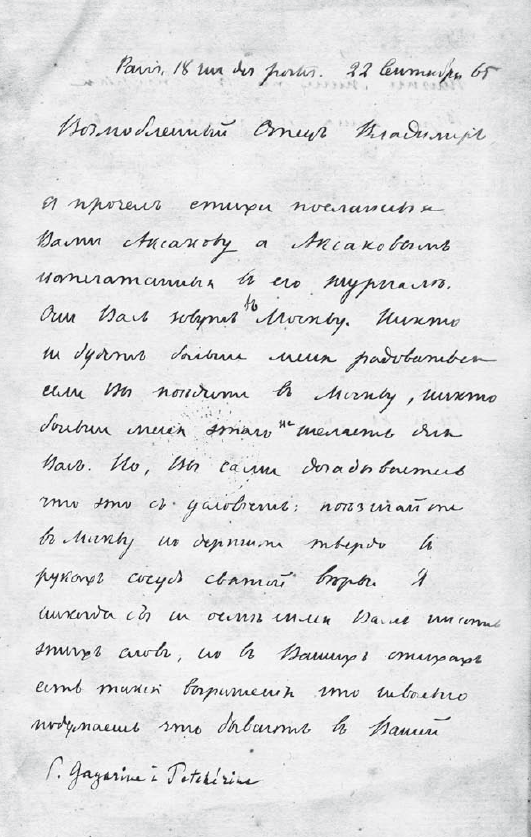 Paris, 18 rue des postes. 22 Сентября 65
Возлюбленный Отецъ Владимиръ
Я прочелъ стихи посланные
Вами Аксакову а Аксаковымъ
напечатанныя въ его журналѣ.
Они Васъ зовутъ въ Москву. Никто
не будетъ больше меня радоваться
если Вы поѣдите въ Москву, никто
больше меня этаго не желаетъ для
Васъ. Но, Вы сами догадываетесь
что это съ условіемъ: поѣзжайте
въ Москву но держите твердо въ
рукахъ сосудъ святой вѣры. Я
никогда бъ не осмѣлился Вамъ писать
этихъ словъ, но въ Вашихъ стихахъ
есть такія выраженія что невольно
подумаешь что бываютъ въ Вашей
P. Gagarine à Petchérine